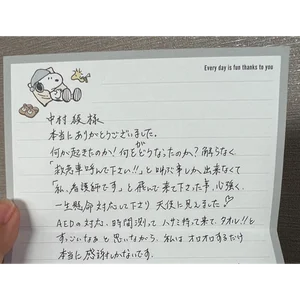 Every day is fun thanks to you
中村 様
本当にありがとうございました。
何が起きたのか!何がどうなったのか?解らなく
「救急車呼んで下さい!!」と叫ぶ事しか出来なくて
「私、看護師です」と飛んで来て下さった事、心強く、
一生懸命対応して下さり 天使に見えました♡
AEDの対応、時間測って ハサミ持って来て、タオル!!と
すっごいなぁと思いながら、私はオロオロするだけ
本当に感謝しかないです。